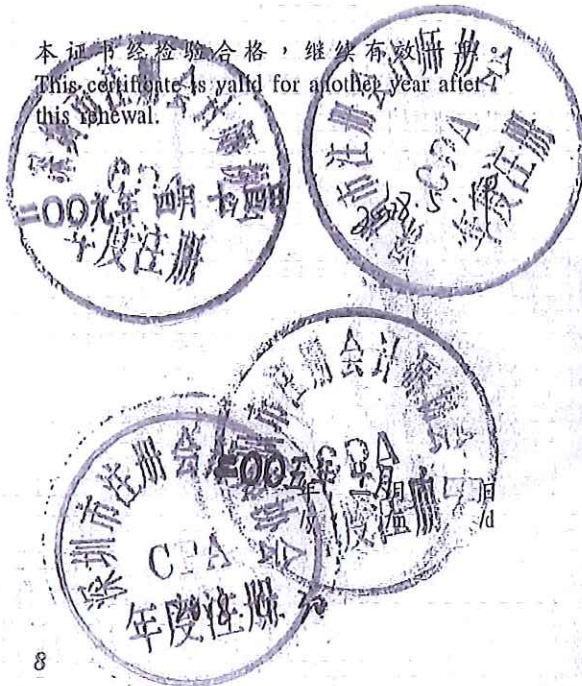 本证书经检验合格，继续有效一年。
This certificate is valid for another year after
this renewal.
深圳市注册会计师协会
二00九年 四月
年度注册
深圳市注册会计师协会
CPA
年度注册
深圳市注册会计师协会
CPA
年 月 日
/y /m /d
深圳市注册会计师协会
CPA
年度注册
8